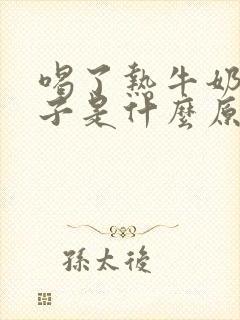 喝了熱牛奶
子是什麼原
孫太後